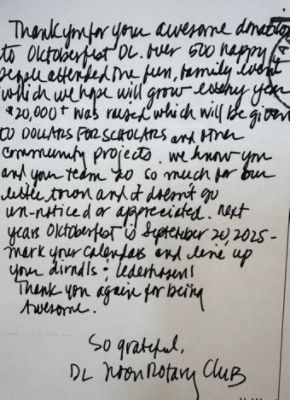 Thank you for your awesome donation
to Oktoberfest DL. Over 500 happy
people attended the fun, family event
which we hope will grow every year
$20,000+ was raised which will be given
TO DOLLARS FOR SCHOLARS and other
community projects. We know you
and your team do so much for our
little town and it doesn't go
un-noticed or appreciated. Next
years Oktoberfest is September 20, 2025-
mark your calendars and line up
your dirndls & lederhosen!
Thank you again for being
Awesome.
So grateful,
DL Noon Rotary Club